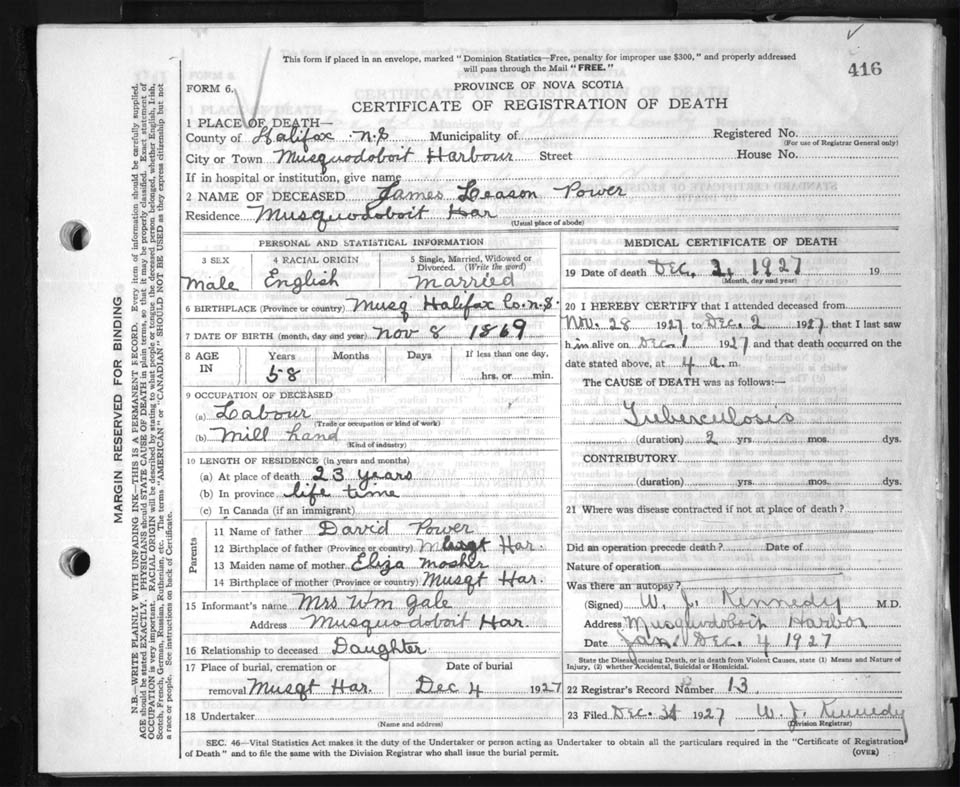 This form if placed in an envelope, marked "Dominion Statistics—Free, penalty for improper use $300," and properly addressed
will pass through the Mail "FREE."
416
FORM 6.
PROVINCE OF NOVA SCOTIA
CERTIFICATE OF REGISTRATION OF DEATH
1 PLACE OF DEATH—
County of Halifax N.S Municipality of
Registered No.
(For use of Registrar General only)
City or Town Musquodoboit Harbour Street House No.
If in hospital or institution, give name
2 NAME OF DECEASED James Leason Power
Residence Musquodoboit Har
(Usual place of abode)
PERSONAL AND STATISTICAL INFORMATION
3 SEX 4 RACIAL ORIGIN 5 Single, Married, Widowed or
Divorced. (Write the word)
Male English Married
6 BIRTHPLACE (Province or country) Musq Halifax Co. N.S.
7 DATE OF BIRTH (month, day and year) Nov 8 1869
8 AGE IN Years Months Days If less than one day,
58 hrs. or min.
9 OCCUPATION OF DECEASED
(a) Labour
(Trade or occupation or kind of work)
(b) Mill hand
(Kind of industry)
10 LENGTH OF RESIDENCE (in years and months)
(a) At place of death 23 years
(b) In province life time
(c) In Canada (if an immigrant)
Parents
11 Name of father David Power
12 Birthplace of father (Province or country) Har.
13 Maiden name of mother Eliza Mosher
14 Birthplace of mother (Province or country) Musqt Har.
15 Informant's name Mrs Wm Gale
Address Musquodoboit Har.
16 Relationship to deceased Daughter
17 Place of burial, cremation or Date of burial
removal Musqt Har. Dec 4 1927
18 Undertaker
(Name and address)
MEDICAL CERTIFICATE OF DEATH
19 Date of death Dec. 2, 1927 19
(Month, day and year)
20 I HEREBY CERTIFY that I attended deceased from
Nov. 28 1927 to Dec. 2 1927 that I last saw
him alive on Dec. 1 1927 and that death occurred on the
date stated above, at 4 a. m.
The CAUSE of DEATH was as follows:—
Tuberculosis
(duration) 2 yrs. mos. dys.
CONTRIBUTORY
(duration) yrs. mos. dys.
21 Where was disease contracted if not at place of death?
Did an operation precede death? Date of
Nature of operation
Was there an autopsy?
(Signed) W. J. Kennedy M.D.
Address Musquodoboit Harbor
Date Jan. Dec. 4 1927
State the Disease causing Death, or in death from Violent Causes, state (1) Means and Nature of
Injury, (2) whether Accidental, Suicidal or Homicidal.
22 Registrar's Record Number 13
23 Filed Dec. 31 1927 W. J. Kennedy
(Division Registrar)
SEC. 46—Vital Statistics Act makes it the duty of the Undertaker or person acting as Undertaker to obtain all the particulars required in the "Certificate of Registration
of Death" and to file the same with the Division Registrar who shall issue the burial permit. (OVER)
MARGIN RESERVED FOR BINDING
N.B.—WRITE PLAINLY WITH UNFADING INK—THIS IS A PERMANENT RECORD. Every item of information should be carefully supplied.
AGE should be stated EXACTLY. PHYSICIANS should STATE CAUSE OF DEATH in plain terms, so that it may be properly classified. Exact statement of
OCCUPATION is very important. RACIAL ORIGIN will be described by stating to what people or tongue the deceased person belonged, whether English, Irish,
Scotch, French, German, Russian, Ruthenian, etc. The terms "AMERICAN" or "CANADIAN" SHOULD NOT BE USED as they express citizenship but not
a race or people. See instructions on back of Certificate.